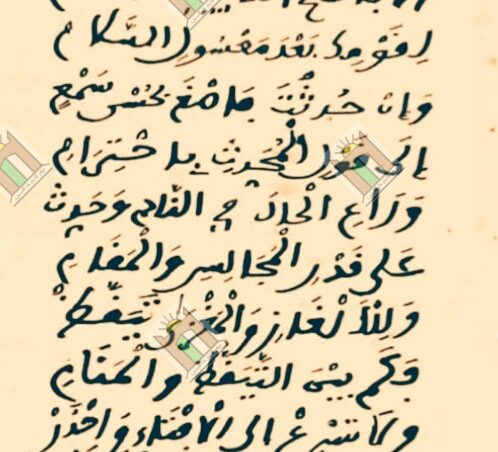 بَعْدَ مَعْسُولِ الكلامِ
وَإِنْ حُدِّثْتَ فاصْغَ بحُسْنِ سَمْعٍ
إِلَى قول الْمُحَدِّثِ باحْتِرَامِ
وَرَاعِ الْحالَ في النَّادِي وَحَدِّثْ
عَلَى قَدْرِ الْمَجَالِسِ وَالْمَقَامِ
وَلِلأَلْغَازِ وَالْمَغْزَى تَيَقَّظْ
فَكَمْ بيْنَ التَّيَقُّظِ وَالْمَنَامِ
وَلا تسْرِعْ إلى الْإفْتَاءِ وَاحْذَرْ